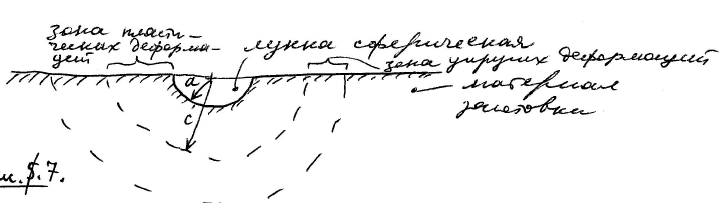 зона пласти-
ческих деформа-
ций
лунка сферическая
зона упругих деформаций
материал
заготовки
a
c
.7.